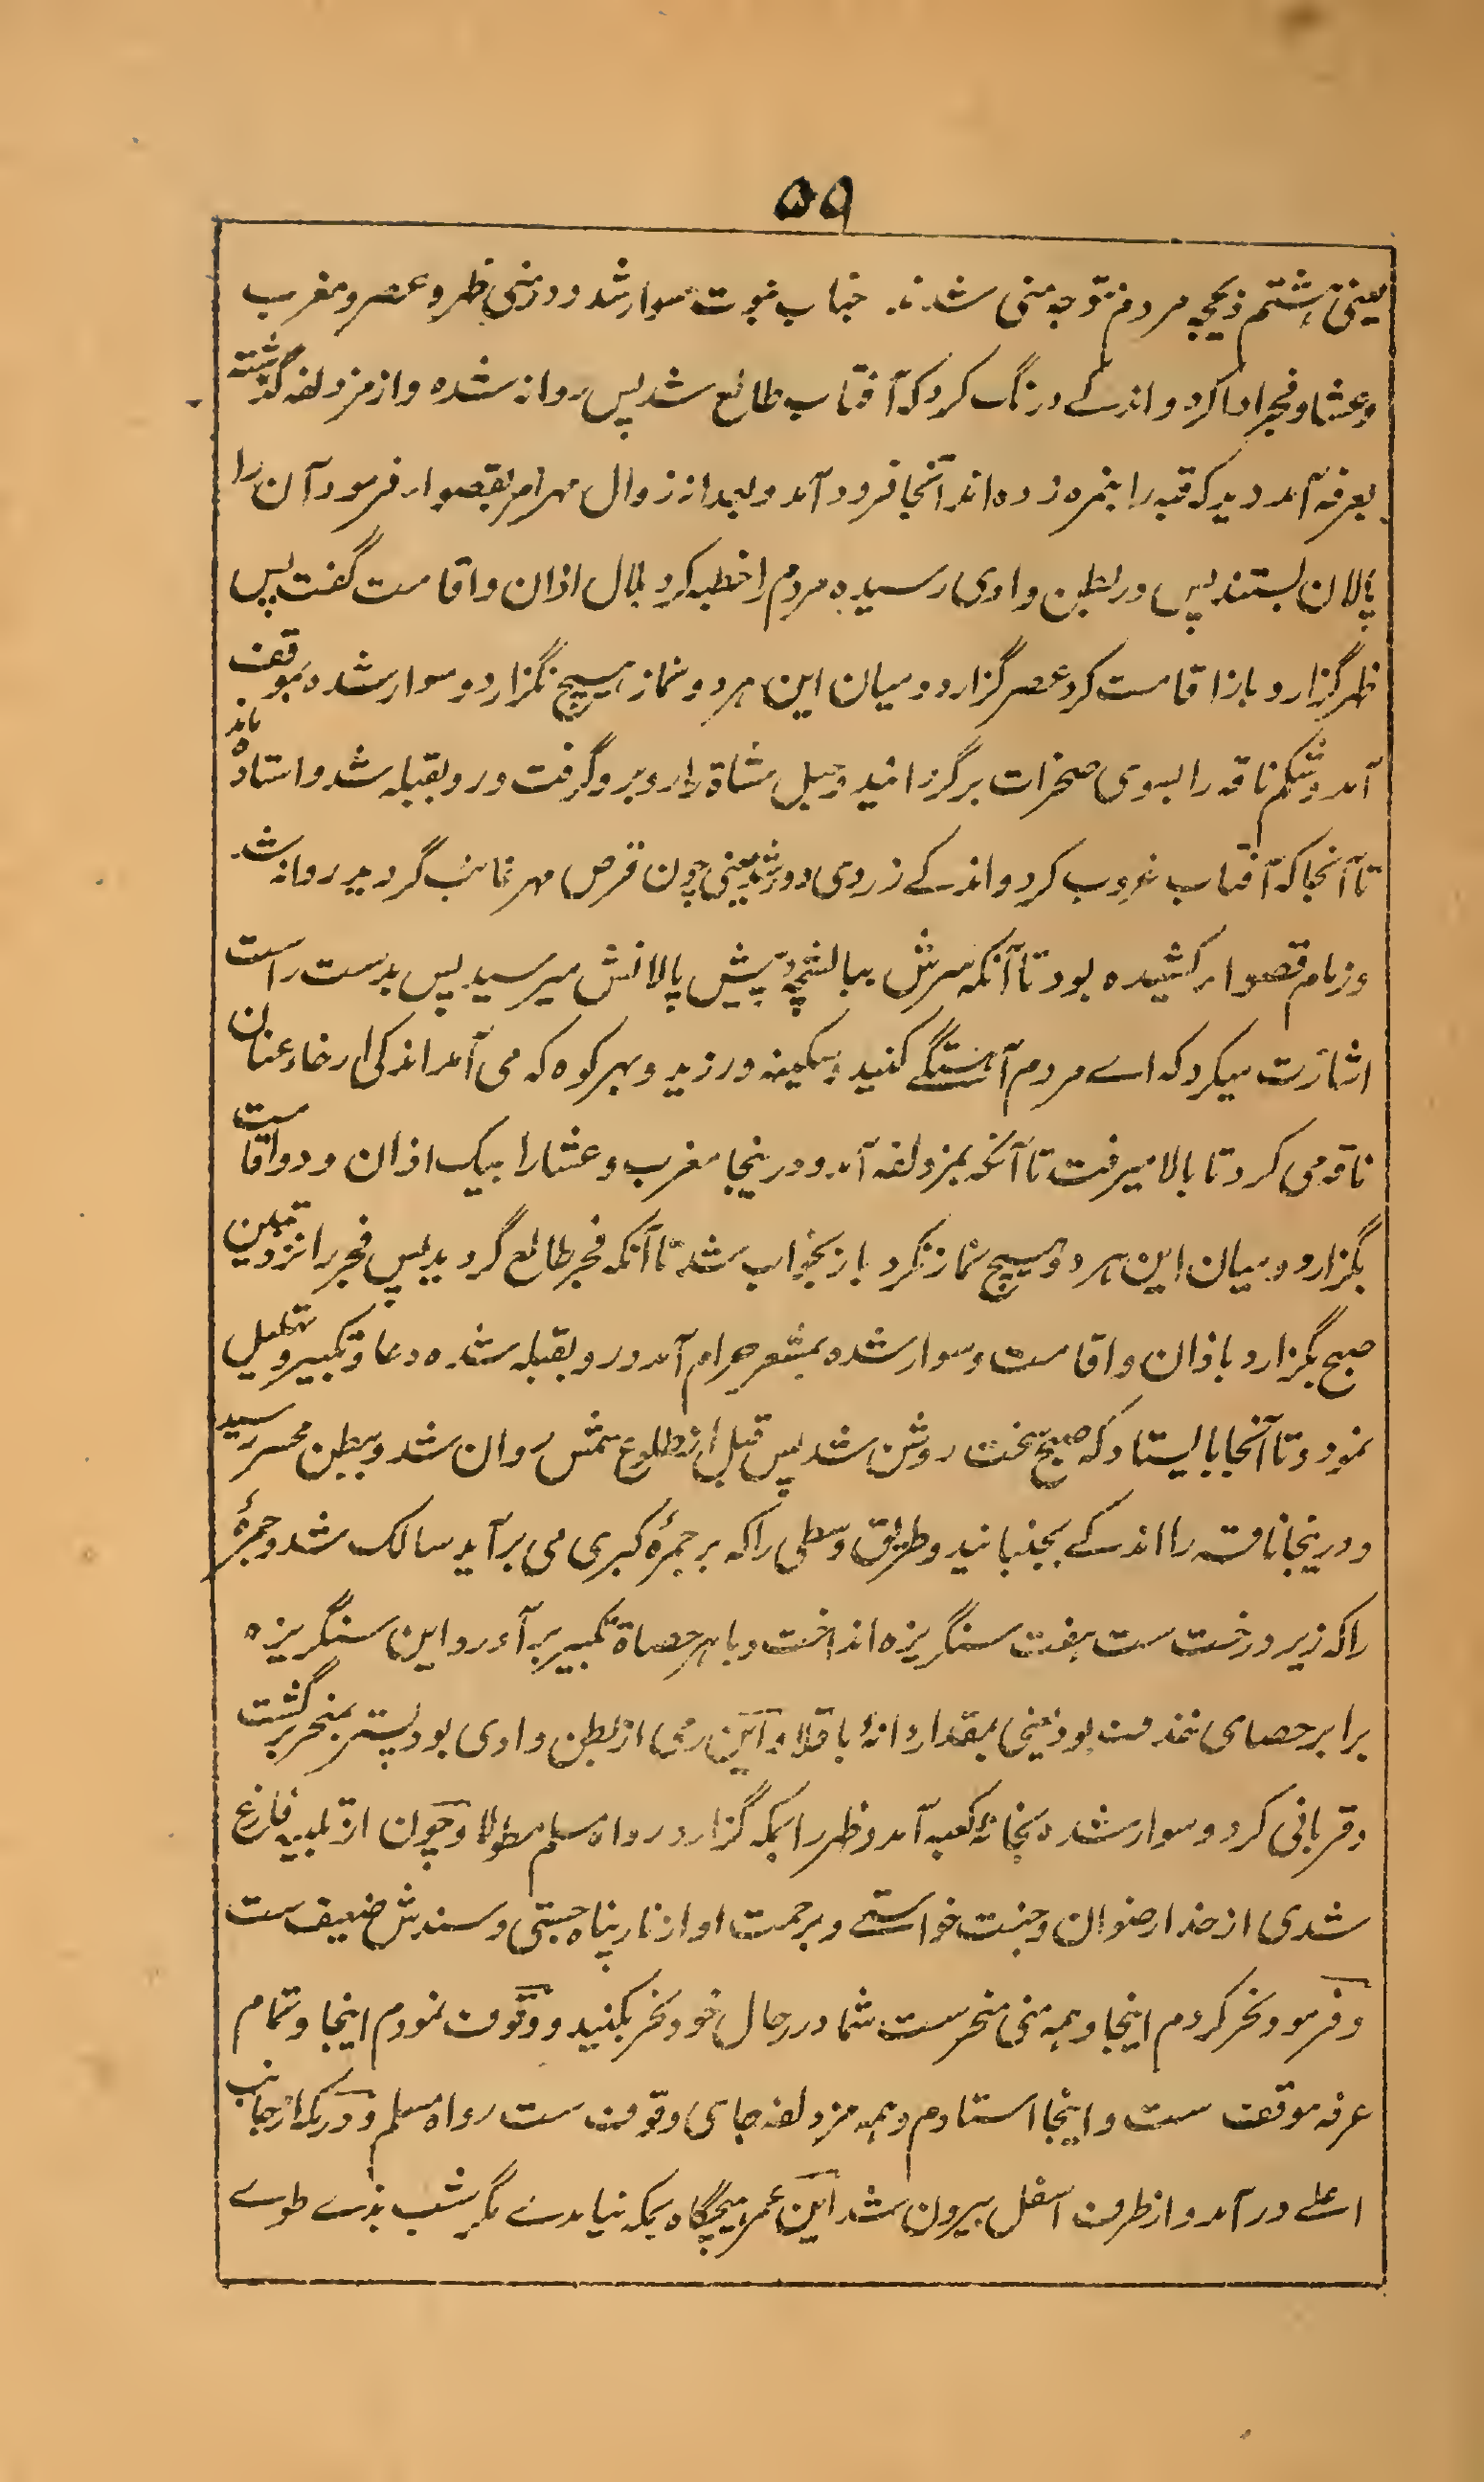 ۵۹
یعنی هشتم ذیحجه مردم متوجه منی شدند جناب نبوت سوار شد و در منی ظهر و عصر و مغرب
و عشا و فجر ادا کرد و اندکے درنگ کرد که آفتاب طالع شد پس روانه شده و از مزدلفه گذشته
بعرفه آمد دید که قبه را بنمره زده اند آنجا فرود آمد و بعد از زوال مهر امر بقصواء فرمود آن را
پالان بستند پس در بطن وادی رسیده مردم را خطبه کرد بلال اذان و اقامت گفت پس
ظهر گزارد و باز اقامت کرد عصر گزارد و میان این هر دو نماز هیچ نگزارد و سوار شده بموقف
آمد و شکم ناقه را بسوی صخرات برگردانید و جبل مشاة را روبرو گرفت و رو بقبله شد و استاده ماند
تا آنجا که آفتاب غروب کرد و اندکے زردی دور شد یعنی چون قرص مهر غائب گردید روانه شد
و زمام قصواء کشیده بود تا آنکه سرش ببالشچهٔ پیش پالانش میرسید پس بدست راست
اشارت میکرد که اے مردم آهستگے کنید و سکینه ورزید و بهر کوه که می آمد اندکی ارخاء عنان
ناقه می کرد تا بالا میرفت تا آنکه بمزدلفه آمد و درینجا مغرب و عشا را بیک اذان و دو اقامت
بگزارد و میان این هر دو هیچ نماز نکرد باز بخواب شد تا آنکه فجر طالع گردید پس فجر را نزد تبین
صبح بگزارد باذان و اقامت و سوار شده بمشعر حرام آمد و رو بقبله شده دعا و تکبیر و تهلیل
نمود و تا آنجا بایستاد که صبح سخت روشن شد پس قبل از طلوع شمس روان شد و ببطن محسر رسید
و درینجا ناقه را اندکے بجنبانید و طریق وسطی را که بر جمرهٔ کبری می برآید سالک شد و جمرهٔ
را که زیر درخت ست هفت سنگریزه انداخت و با هر حصاة تکبیر برآورد و این سنگریزه
برابر حصای خذف بود یعنی بمقدار دانهٔ باقلا و آین رمی از بطن وادی بود پستر بمنحر برگشت
و قربانی کرد و سوار شده بخانهٔ کعبه آمد و ظهر را بمکه گزارد رواه مسلم مطولا و چون از تلبیه فارغ
شدی از خدا رضوان و جنت خواستے و برحمت او از نار پناه جستی و سندش ضعیف ست
و فرمود نحر کردم اینجا و همه منی منحر ست شما در رحال خود نحر بکنید و وقوف نمودم اینجا و تمام
عرفه موقف ست و اینجا استادم و همه مزدلفه جای وقوف ست رواه مسلم و در مکه از جانب
اعلے در آمد و از طرف اسفل بیرون شد ابن عمر هیچگاه بمکه نیامدے مگر شب بذے طوے